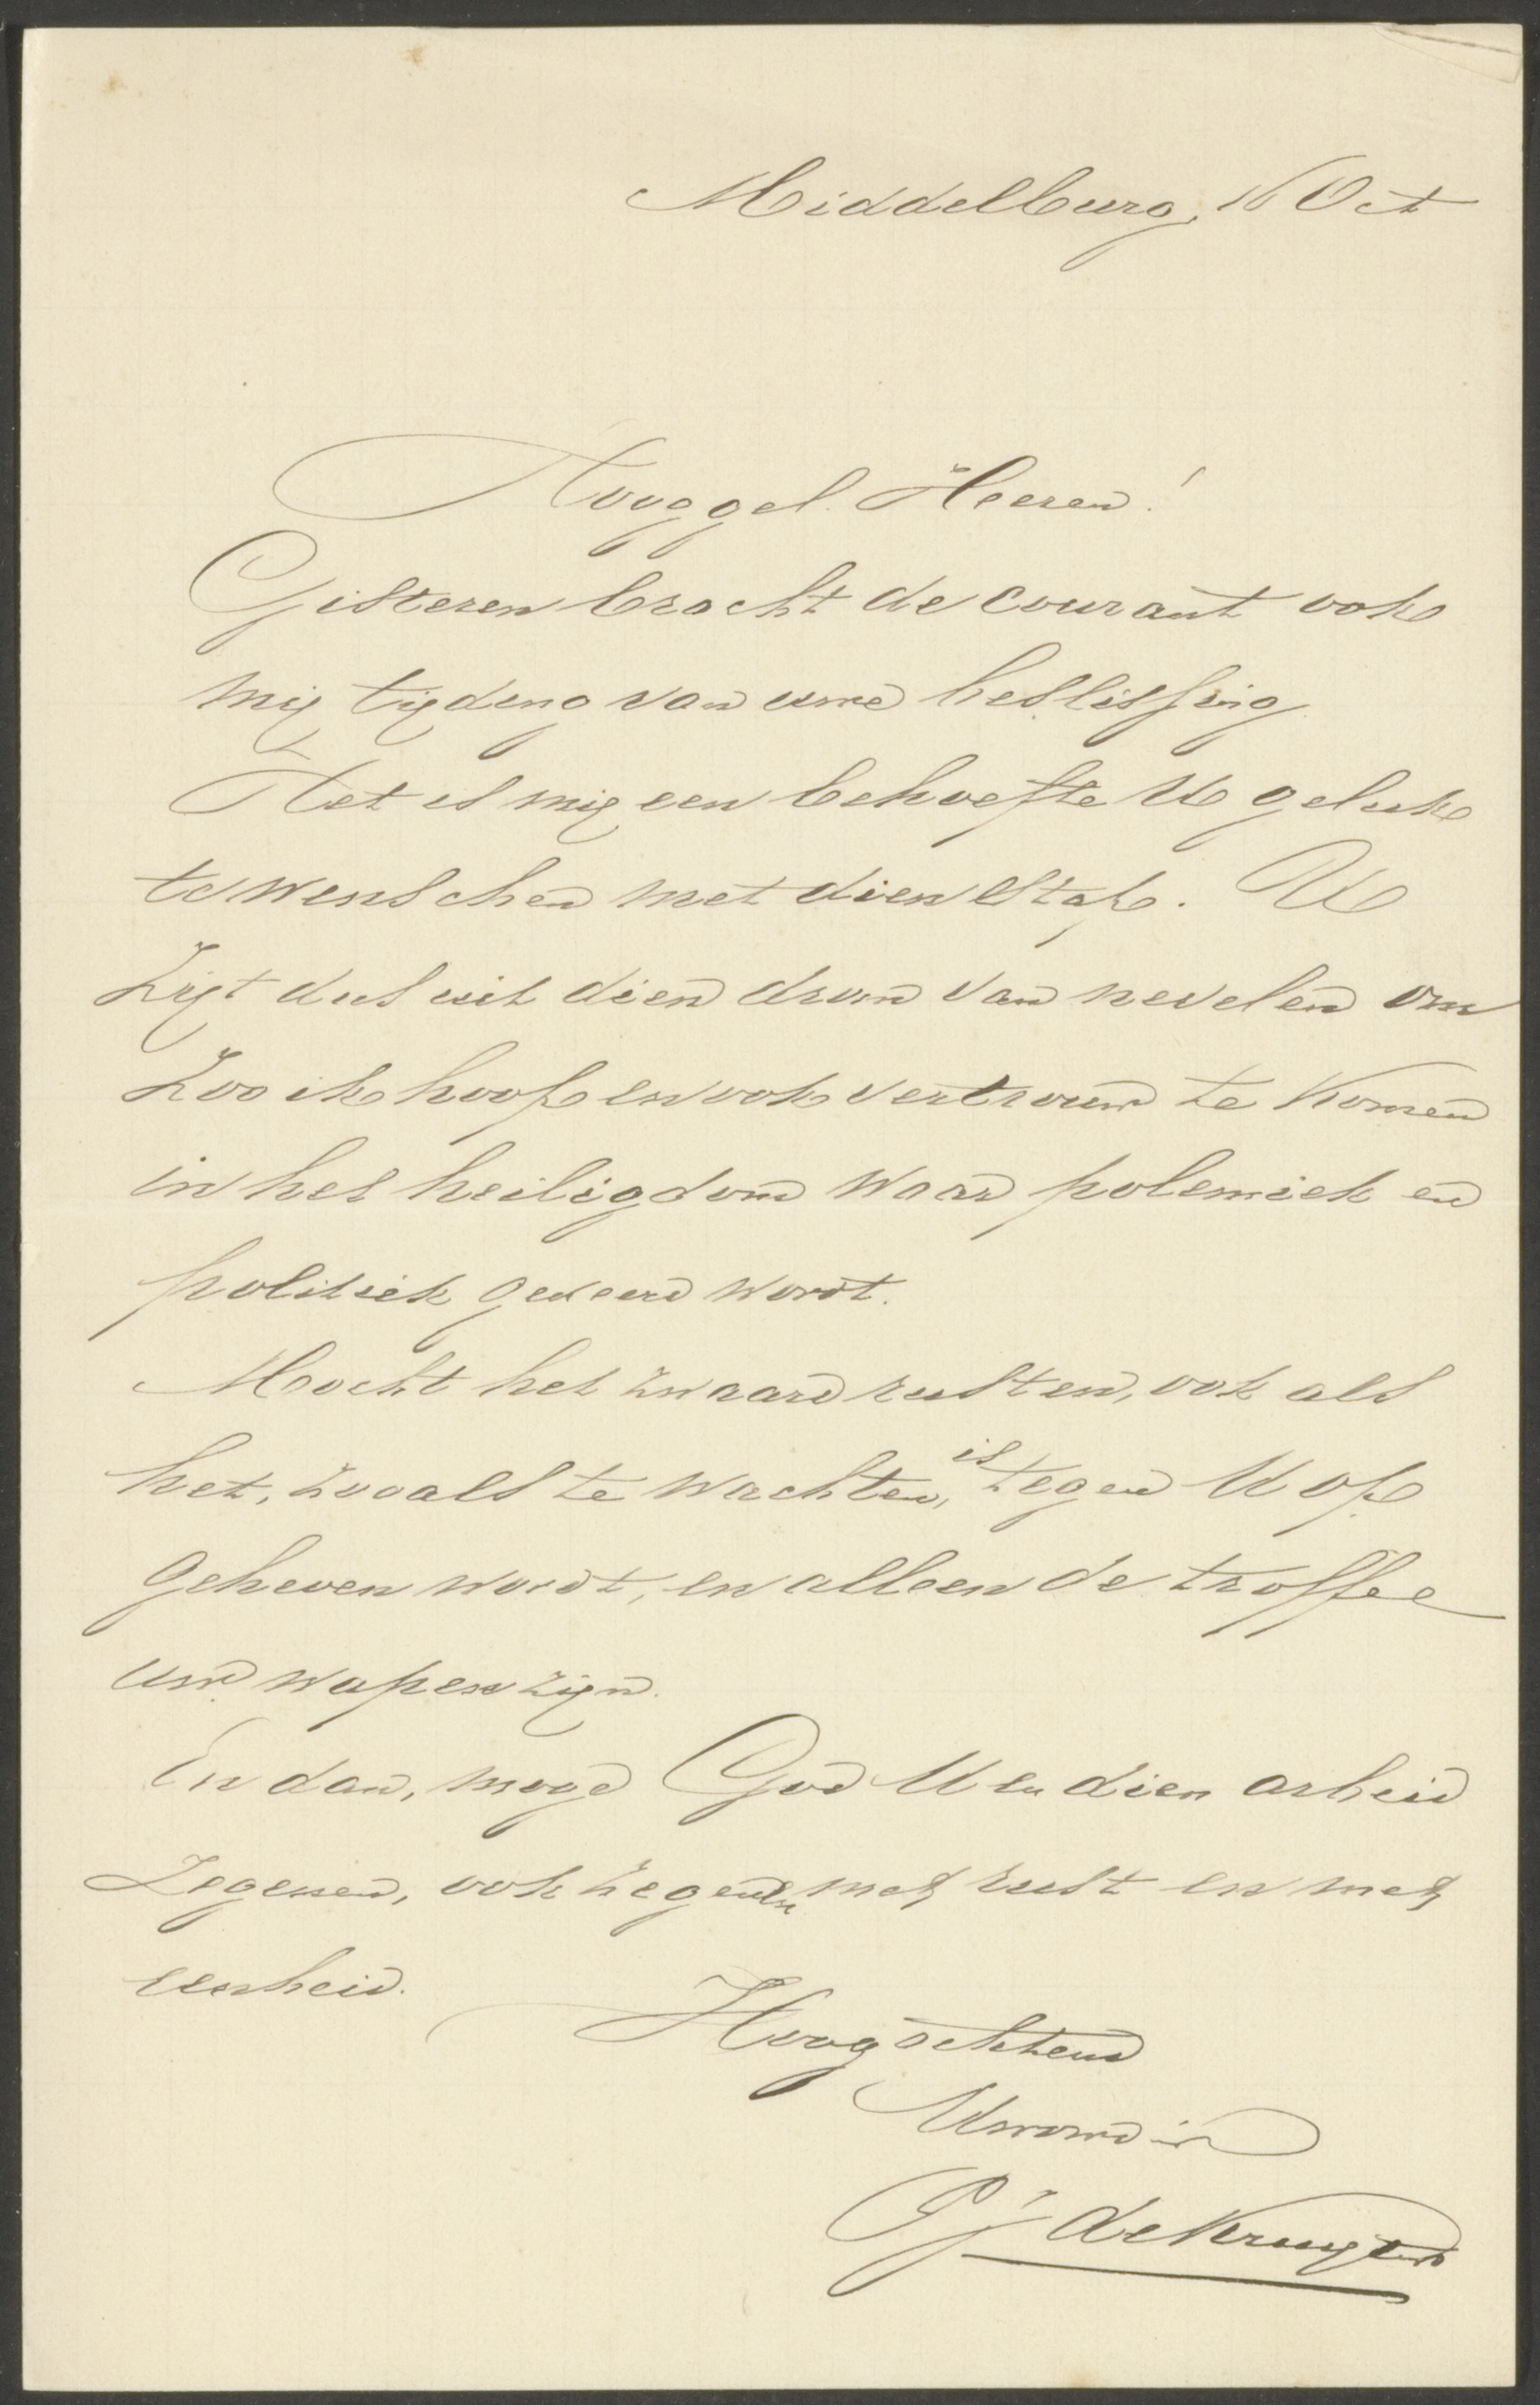 Middelburg, 16 Oct
Hooggel. Heeren!
Gisteren bracht de courant ook
mij tijding van uwe beslissing
Het is mij een behoefte U geluk
te wenschen met dien stap. U
zijt dus uit dien drom van nevelen om
zoo ik hoop en ook vertrouw te komen
in het heiligdom waar polemiek en
politiek geweerd wordt.
Mocht het zwaard rusten, ook als
het, zooals te wachten is, tegen U op
geheven wordt, en alleen de troffel
uw wapen zijn.
En dan, moge God U en dien arbeid
zegenen, ook zegenen met rust en met
eenheid.
Hoogachtend
P J de Kruyter